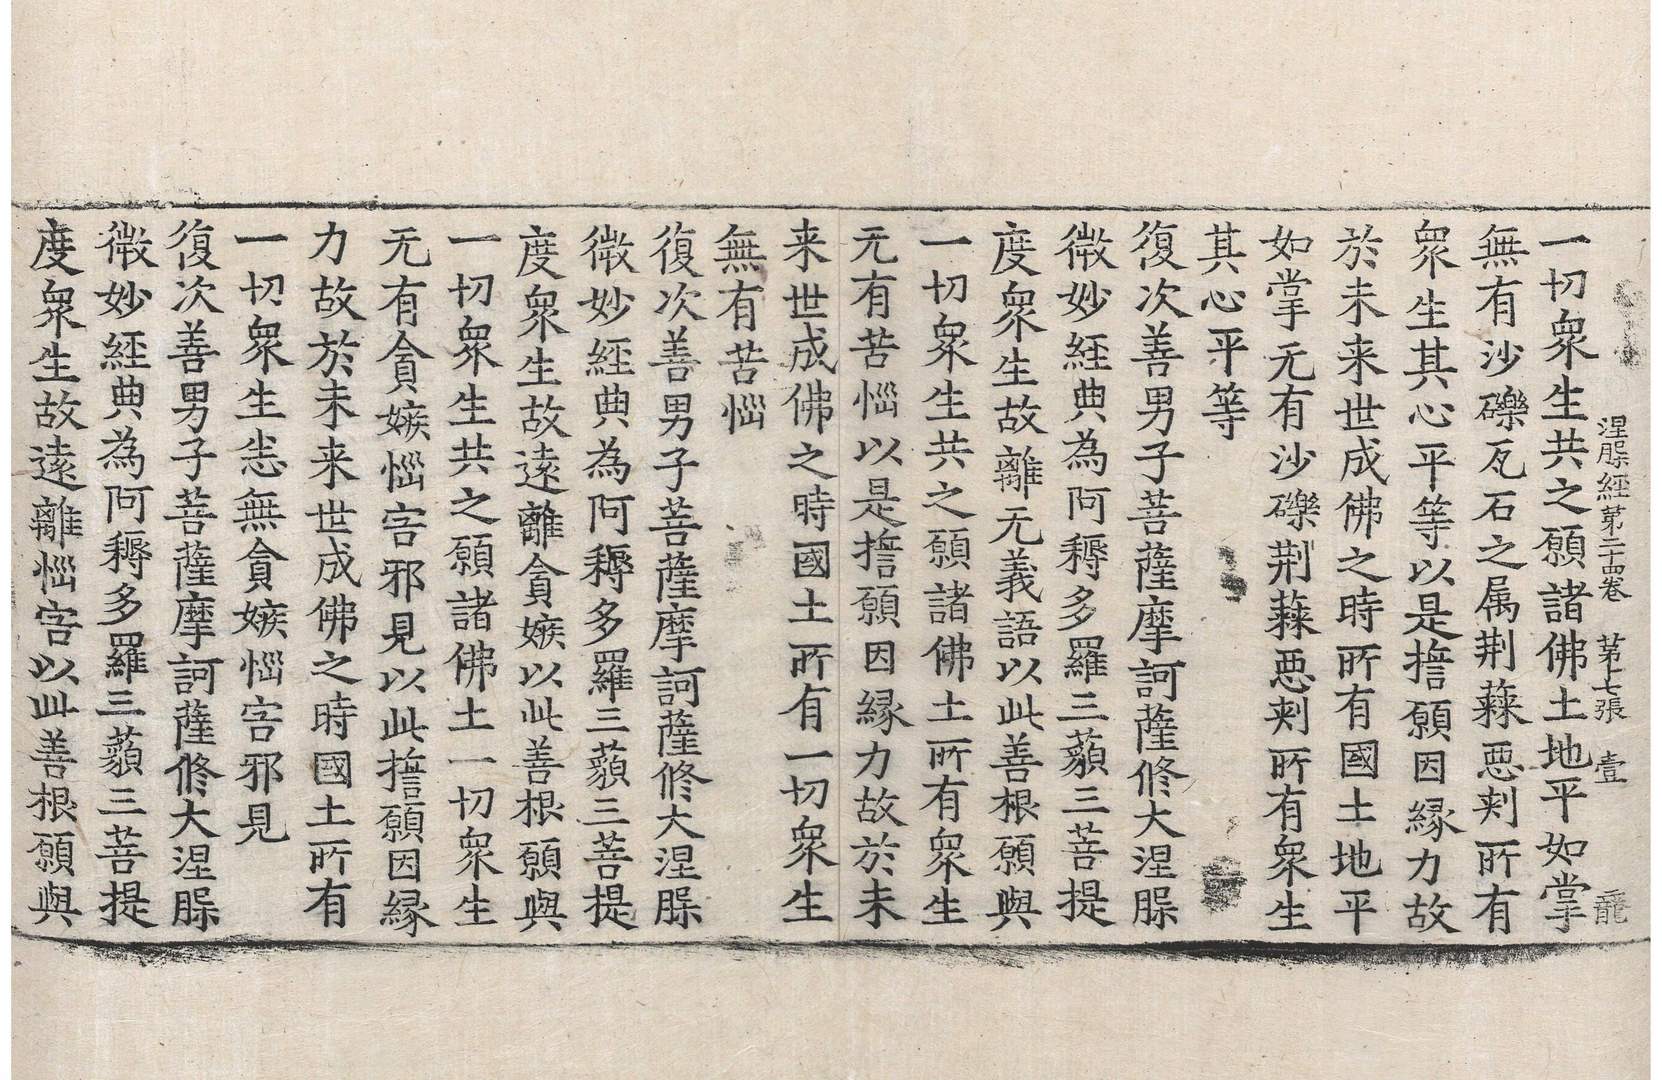 涅槃經第二十四卷 第七張 壹 龍
一切衆生共之願諸佛土地平如掌
無有沙礫瓦石之属荆蕀惡刾所有
衆生其心平等以是擔願因縁力故
於未来世成佛之時所有國土地平
如掌无有沙礫荆蕀惡刾所有衆生
其心平等
復次善男子菩薩摩訶薩修大涅槃
微妙經典為阿耨多羅三藐三菩提
度衆生故離无義語以此善根願與
一切衆生共之願諸佛土所有衆生
无有苦惱以是擔願因縁力故於未
来世成佛之時國土所有一切衆生
無有苦惱
復次善男子菩薩摩訶薩修大涅槃
微妙經典為阿耨多羅三藐三菩提
度衆生故遠離貪嫉以此善根願與
一切衆生共之願諸佛土一切衆生
无有貪嫉惱害邪見以此擔願因縁
力故於未来世成佛之時國土所有
一切衆生悉無貪嫉惱害邪見
復次善男子菩薩摩訶薩修大涅槃
微妙經典為阿耨多羅三藐三菩提
度衆生故遠離惱害以此善根願與